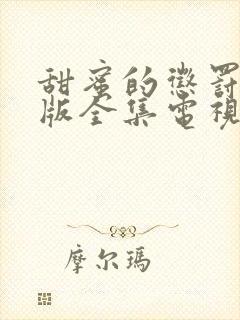 甜蜜的懲罰
版全集電視
摩尔瑪